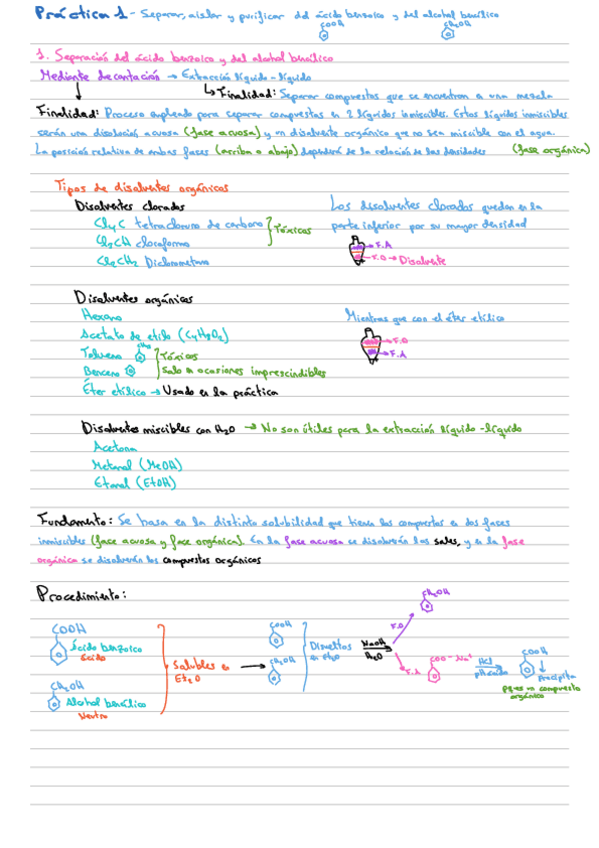 Práctica 1 - Separar, aislar y purificar del ácido benzoico y del alcohol bencílico
COOH
CH2OH
1. Separación del ácido benzoico y del alcohol bencílico
Mediante decantación → Extracción líquido-líquido
↳ Finalidad: Separar compuestos que se encuentran en una mezcla
Finalidad: Proceso empleado para separar compuestos en 2 líquidos inmiscibles. Estos líquidos inmiscibles
serán una disolución acuosa (fase acuosa) y un disolvente orgánico que no sea miscible con el agua.
La posición relativa de ambas fases (arriba o abajo) dependerá de la relación de las densidades (fase orgánica)
Tipos de disolventes orgánicos
Disolventes clorados
Cl4C tetracloruro de carbono
Cl3CH cloroformo
Cl2CH2 Diclorometano
Tóxicos
Los disolventes clorados quedan en la
parte inferior por su mayor densidad
F.A
F.O → Disolvente
Disolventes orgánicos
Hexano
Acetato de etilo (C4H8O2)
Tolueno
Benceno
Tóxicos
Solo a ocasiones imprescindibles
Éter etílico → Usado en la práctica
Mientras que con el éter etílico
F.O
F.A
Disolventes miscibles con H2O → No son útiles para la extracción líquido-líquido
Acetona
Metanol (MeOH)
Etanol (EtOH)
Fundamento: Se basa en la distinta solubilidad que tienen los compuestos en dos fases
inmiscibles (fase acuosa y fase orgánica). En la fase acuosa se disolverán las sales, y en la fase
orgánica se disolverán los compuestos orgánicos
Procedimiento:
COOH
Ácido benzoico
Ácido
CH2OH
Alcohol bencílico
Neutro
Solubles en
Et2O
COOH
CH2OH
Disueltos
en Et2O
NaOH
H2O
F.O
CH2OH
F.A
COO-Na+
HCl
pH ácido
COOH
Precipita
pq es un compuesto
orgánico